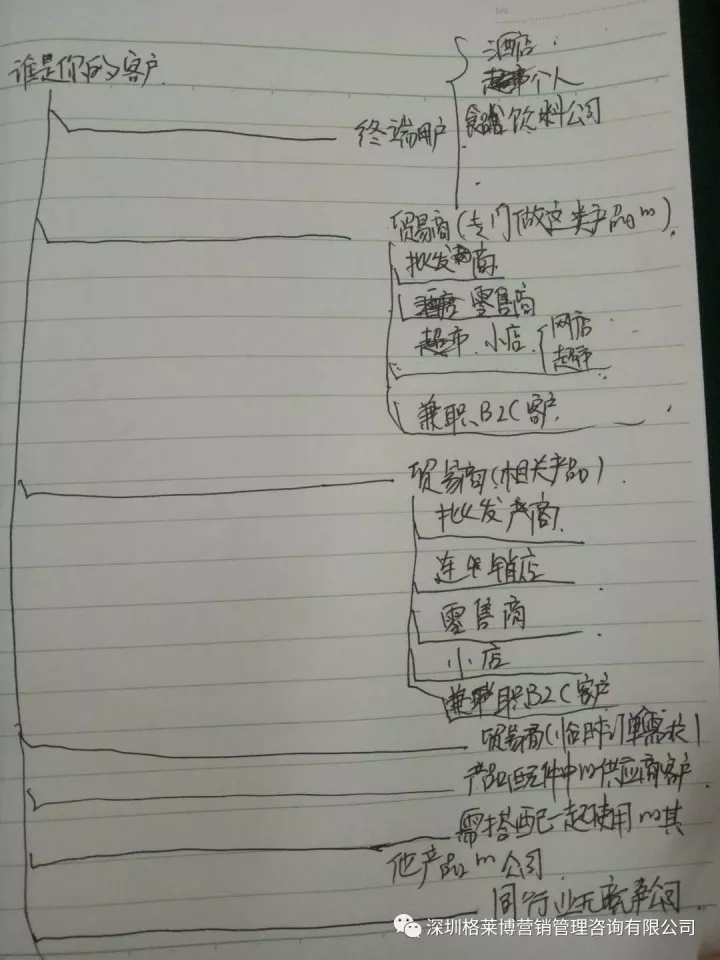 谁是你的客户
酒店
超市个人
终端用户
食品饮料公司
贸易商(专门做这类产品m)
批发商
酒店 零售商
超市、小店
网店
超市
兼职B2C客户
贸易商(相关产品)
批发商
连锁店
零售商
小店
兼职B2C客户
贸易商(临时订单需求)
产品配件中m供应商客户
需搭配一起使用m其
他产品m公司
同行业无竞争公司
深圳格莱博营销管理咨询有限公司